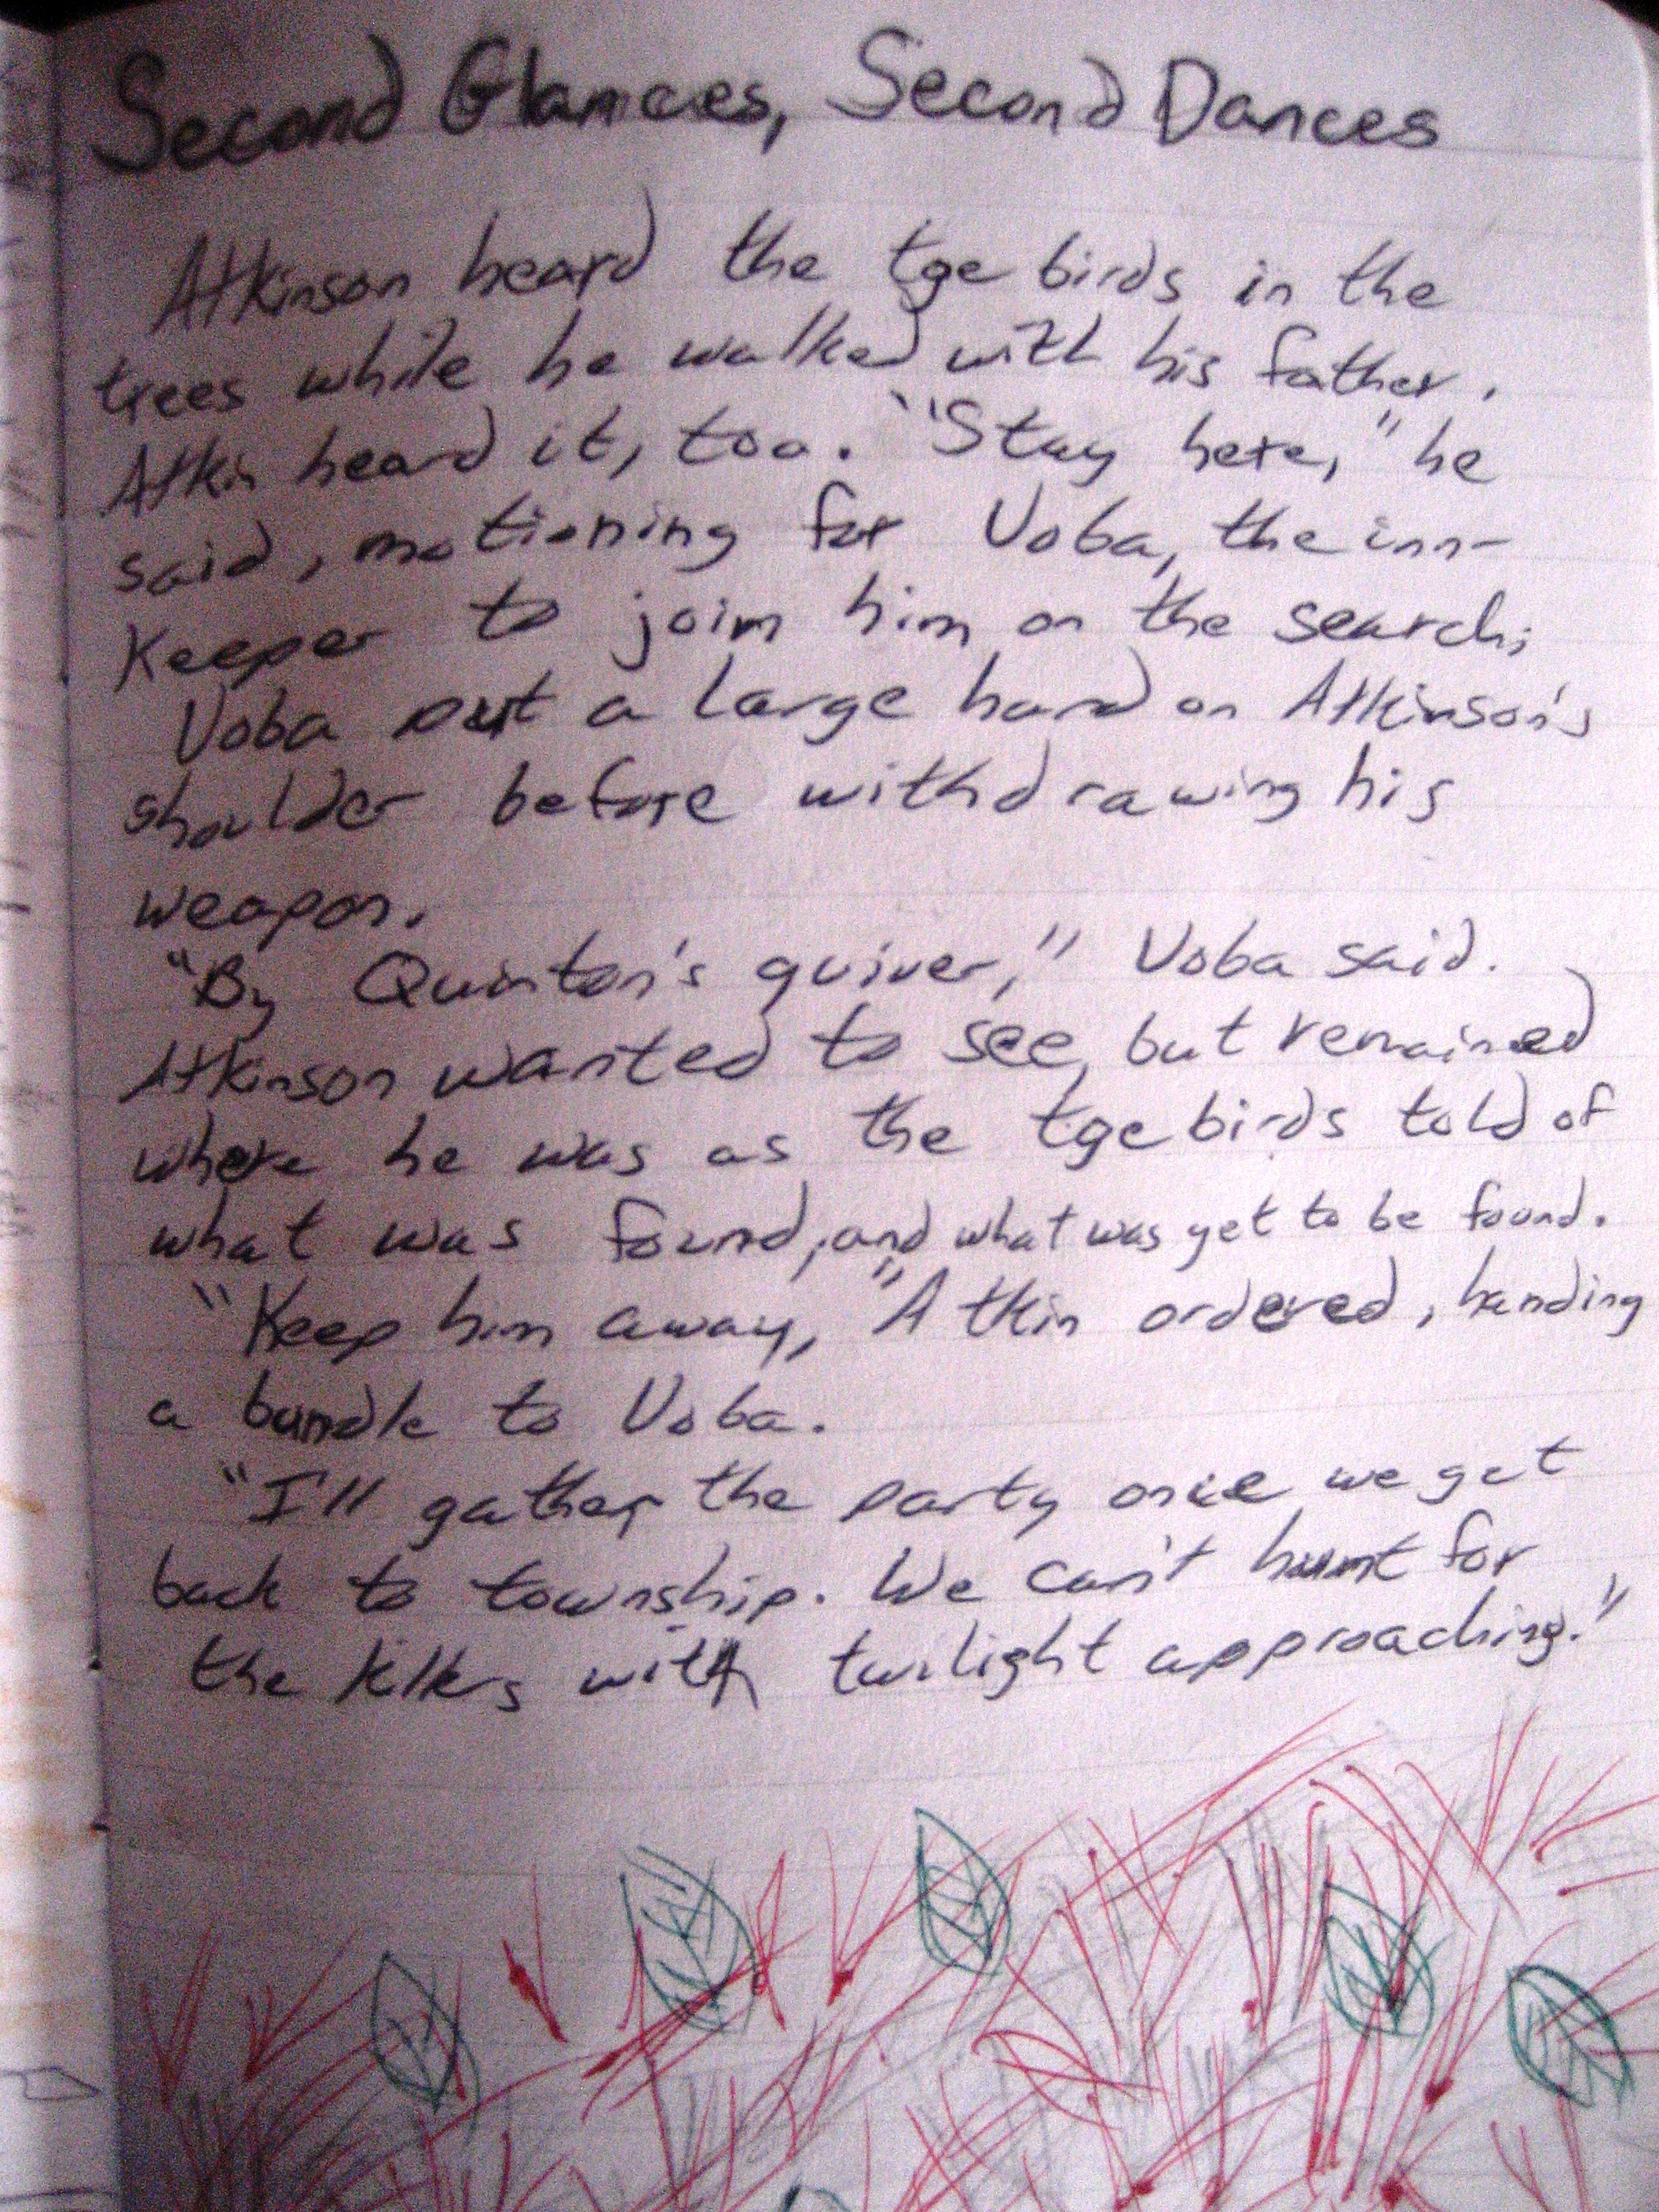 Second Glances, Second Dances
Atkinson heard the tge birds in the
trees while he walked with his father.
Atkin heard it, too. "Stay here," he
said, motioning for Voba, the inn-
keeper to join him on the search;
Voba put a large hand on Atkinson's
shoulder before withdrawing his
weapon.
"By Quinton's quiver," Voba said.
Atkinson wanted to see, but remained
where he was as the tge birds told of
what was found, and what was yet to be found.
"Keep him away," Atkin ordered, handing
a bundle to Voba.
"I'll gather the party once we get
back to township. We can't hunt for
the with twilight approaching."